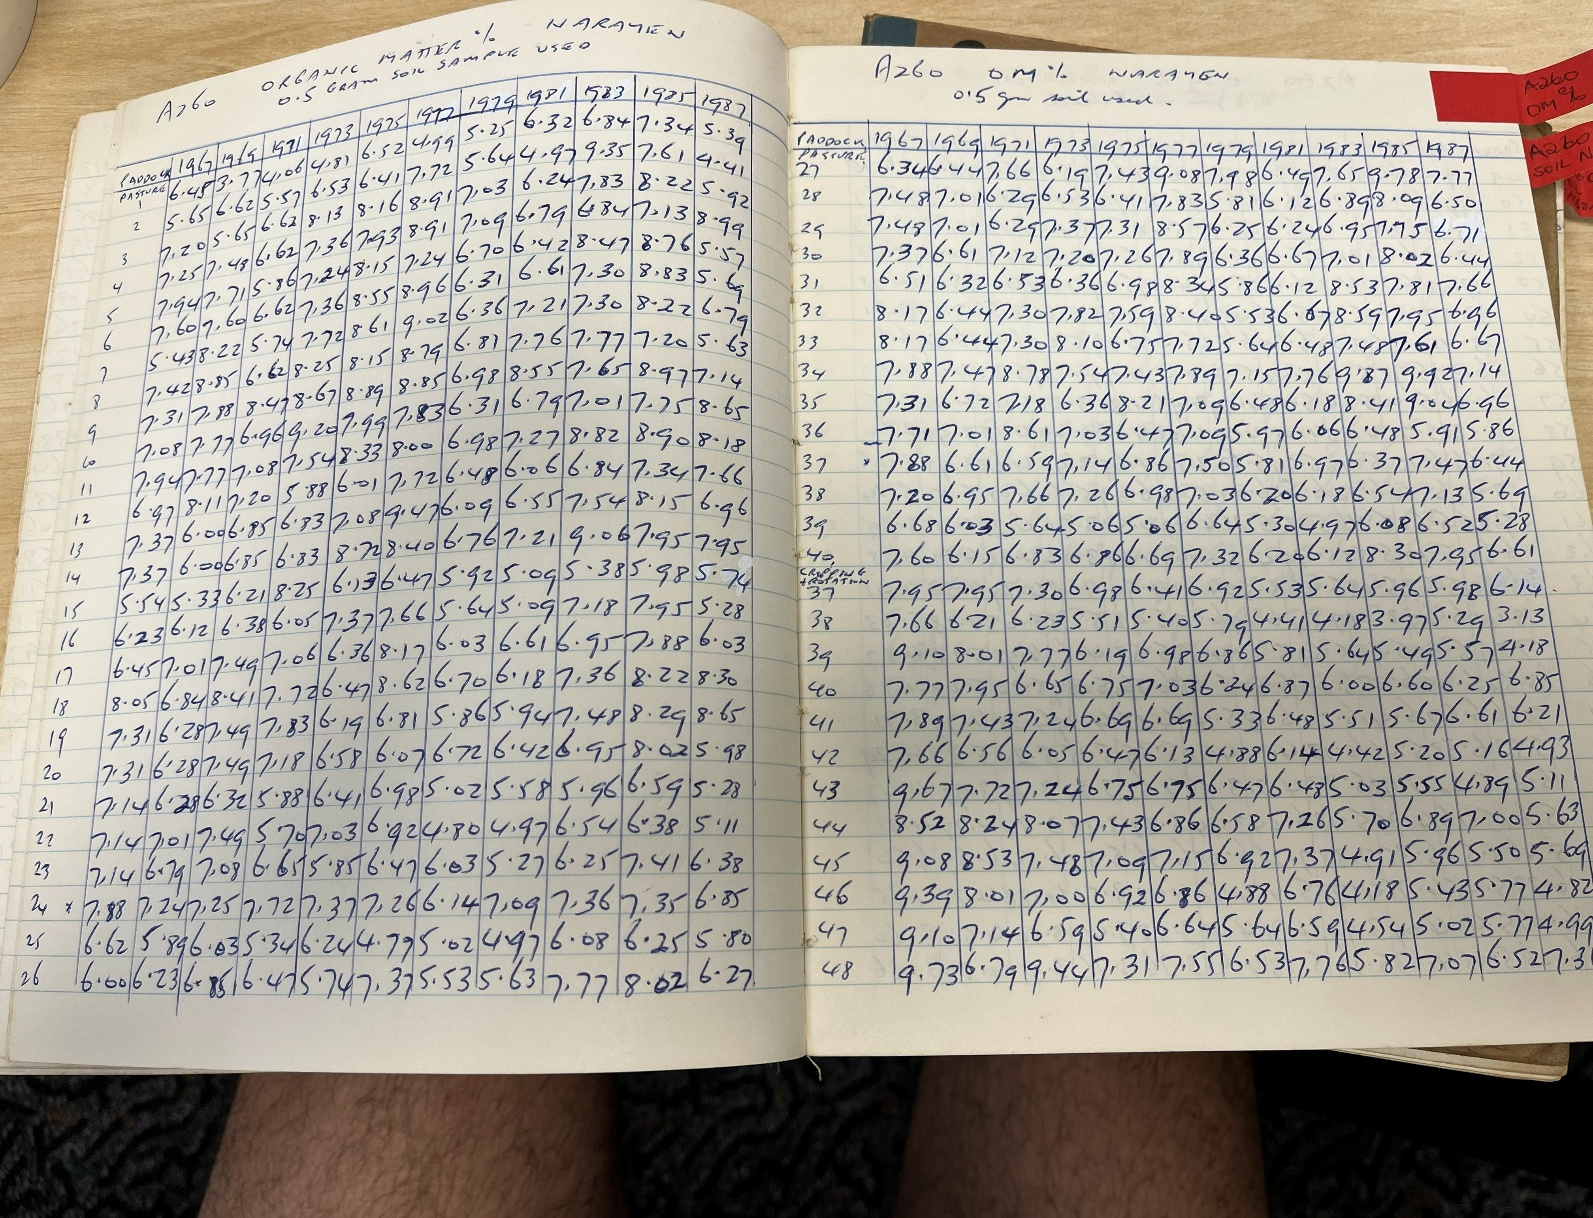 A260 ORGANIC MATTER % NARAYEN
0.5 GRAM SOIL SAMPLE USED
PADDOCK 1967 1969 1971 1973 1975 1977 1979 1981 1983 1985 1987
PASTURE
1 6.45 3.77 4.06 4.81 6.52 4.99 5.25 6.32 6.84 7.34 5.39
2 5.65 6.62 5.57 6.53 6.41 7.72 5.64 4.97 9.35 7.61 4.41
3 7.20 5.65 6.62 8.13 8.16 8.91 7.03 6.24 7.83 8.22 5.92
4 7.25 7.48 6.62 7.36 7.93 8.91 7.09 6.79 6.84 7.13 8.99
5 7.94 7.71 5.86 7.24 8.15 7.24 6.70 6.42 8.47 8.76 5.57
6 7.60 7.60 6.62 7.36 8.55 8.96 6.31 6.61 7.30 8.83 5.69
7 5.43 8.22 5.74 7.72 8.61 9.02 6.36 7.21 7.30 8.22 6.79
8 7.42 8.85 6.62 8.25 8.15 8.79 6.81 7.76 7.77 7.20 5.63
9 7.31 7.88 8.47 8.67 8.89 8.85 6.98 8.55 7.65 8.97 7.14
10 7.08 7.77 6.96 9.20 7.99 7.83 6.31 6.79 7.01 7.75 8.65
11 7.94 7.77 7.08 7.54 8.33 8.00 6.98 7.27 8.82 8.90 8.18
12 6.97 8.11 7.20 5.88 6.01 7.72 6.48 6.06 6.84 7.34 7.66
13 7.37 6.00 6.85 6.83 7.08 9.47 6.09 6.55 7.54 8.15 6.96
14 7.37 6.00 6.85 6.83 8.72 8.40 6.76 7.21 9.06 7.95 7.95
15 5.54 5.33 6.21 8.25 6.13 6.47 5.92 5.09 5.38 5.98 5.74
16 6.23 6.12 6.38 6.05 7.37 7.66 5.64 5.09 7.18 7.95 5.28
17 6.45 7.01 7.49 7.06 6.36 8.17 6.03 6.61 6.95 7.88 6.03
18 8.05 6.84 8.41 7.72 6.47 8.62 6.70 6.18 7.36 8.22 8.30
19 7.31 6.28 7.49 7.83 6.19 6.81 5.86 5.94 7.48 8.29 8.65
20 7.31 6.28 7.49 7.18 6.58 6.07 6.72 6.42 6.95 8.02 5.98
21 7.14 6.28 6.32 5.88 6.41 6.98 5.02 5.58 5.96 6.59 5.28
22 7.14 7.01 7.49 5.70 7.03 6.92 4.80 4.97 6.54 6.38 5.11
23 7.14 6.79 7.08 6.65 5.85 6.47 6.03 5.27 6.25 7.41 6.38
24 * 7.88 7.24 7.25 7.72 7.37 7.26 6.14 7.09 7.36 7.35 6.85
25 6.62 5.89 6.03 5.34 6.24 4.79 5.02 4.97 6.08 6.25 5.80
26 6.00 6.23 6.85 6.47 5.74 7.37 5.53 5.63 7.77 8.02 6.27
A260 OM % NARAYEN
0.5 gm soil used.
PADDOCK 1967 1969 1971 1973 1975 1977 1979 1981 1983 1985 1987
PASTURE
27 6.34 6.44 7.66 6.19 7.43 9.08 7.98 6.49 7.65 9.78 7.77
28 7.48 7.01 6.29 6.53 6.41 7.83 5.81 6.12 6.89 8.09 6.50
29 7.48 7.01 6.29 7.37 7.31 8.57 6.25 6.24 6.95 7.75 6.71
30 7.37 6.61 7.12 7.20 7.26 7.89 6.36 6.67 7.01 8.02 6.44
31 6.51 6.32 6.53 6.36 6.98 8.34 5.86 6.12 8.53 7.81 7.66
32 8.17 6.44 7.30 7.82 7.59 8.40 5.53 6.67 8.59 7.95 6.96
33 8.17 6.44 7.30 8.10 6.75 7.72 5.64 6.48 7.48 7.61 6.67
34 7.88 7.47 8.78 7.54 7.43 7.89 7.15 7.76 9.87 9.92 7.14
35 7.31 6.72 7.18 6.36 8.21 7.09 6.48 6.18 8.41 9.04 6.96
36 7.71 7.01 8.61 7.03 6.47 7.09 5.97 6.06 6.48 5.91 5.86
37 * 7.88 6.61 6.59 7.14 6.86 7.50 5.81 6.97 6.37 7.47 6.44
38 7.20 6.95 7.66 7.26 6.98 7.03 6.20 6.18 6.54 7.13 5.69
39 6.68 6.03 5.64 5.06 5.06 6.64 5.30 4.97 6.08 6.52 5.28
40 7.60 6.15 6.83 6.86 6.69 7.32 6.20 6.12 8.30 7.95 6.61
CROPPING
+ROTATION
37 7.95 7.95 7.30 6.98 6.41 6.92 5.53 5.64 5.96 5.98 6.14
38 7.66 6.21 6.23 5.51 5.40 5.79 4.41 4.18 3.97 5.29 3.13
39 9.10 8.01 7.77 6.19 6.98 6.86 5.81 5.64 5.49 5.57 4.18
40 7.77 7.95 6.65 6.75 7.03 6.24 6.87 6.00 6.60 6.25 6.85
41 7.89 7.43 7.24 6.69 6.69 5.33 6.48 5.51 5.67 6.61 6.21
42 7.66 6.56 6.05 6.47 6.13 4.88 6.14 4.42 5.20 5.16 4.93
43 9.67 7.72 7.24 6.75 6.75 6.47 6.48 5.03 5.55 4.89 5.11
44 8.52 8.24 8.07 7.43 6.86 6.58 7.26 5.70 6.89 7.00 5.63
45 9.08 8.53 7.48 7.09 7.15 6.92 7.37 4.91 5.96 5.50 5.69
46 9.39 8.01 7.00 6.92 6.86 4.88 6.76 4.18 5.43 5.77 4.82
47 9.10 7.14 6.59 5.40 6.64 5.64 6.59 4.54 5.02 5.77 4.99
48 9.73 6.79 9.44 7.31 7.55 6.53 7.76 5.82 7.07 6.52 7.3
A260
OM %
A260
SOIL N